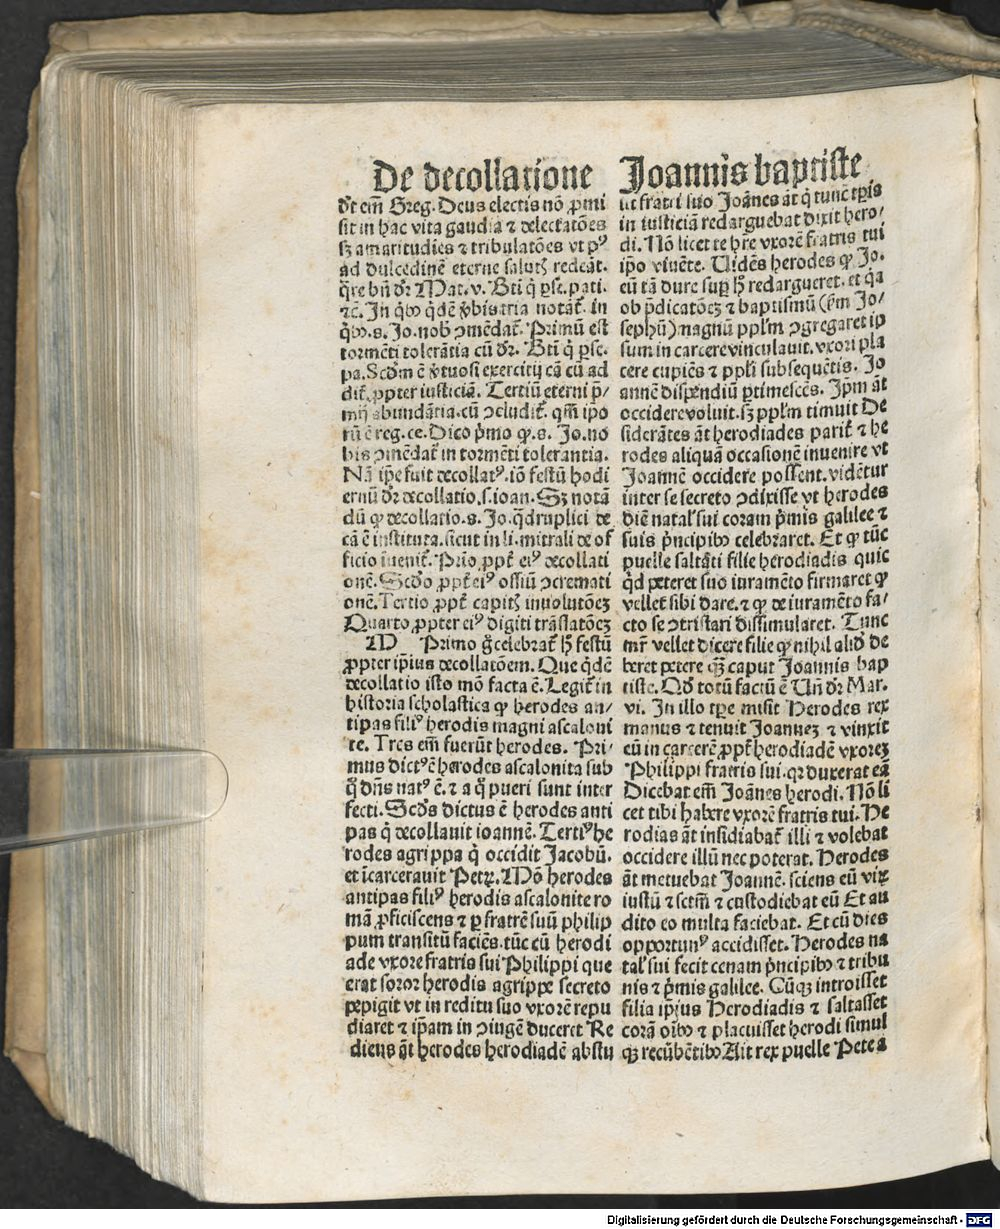 De decollatione Joannis baptiste
dt em̄ Greg. Deus electis nō ꝓmi
sit in hac vita gaudia ⁊ delectatōes
sꝫ amaritudies ⁊ tribulatōes vt pꝰ
ad dulcedinē eterne salutꝭ redeāt.
q̄re bn̄ dr̄ Mat. v. Bti q̇ ꝑse. pati.
⁊c̄. In q̇bꝰ q̇dē ꝟbis tria notāt᷑. in
q̇bꝰ .s. Jo. nob̄ ꝯmēdat᷑. Primū est
tormēti tolerātia cū dr̄. Bti q̇ ꝑse.
pa. Scd̄m ē ꝟtuosi exercitij cā cū ad
dit᷑. ꝓpter iusticiā. Tertiū eterni p̄/
mij abundātia. cū ꝯcludit᷑. qm̄ ipo
rū ē reg. ce. Dico p̄mo ꝙ .s. Jo. no
bis ꝯmēdat᷑ in tormēti tolerantia.
Nā ip̄e fuit decollatꝰ. iō festū hodi
ernū dr̄ decollatio. s. ioan. Sꝫ notā
dū ꝙ decollatio .s. Jo. q̄druplici de
cā ē instituta. sicut in li. mitrali de of
ficio īuenit᷑. Prīo ꝓpt᷑ eiꝰ decollati
onē. Scd̄o ꝓpt᷑ eiꝰ ossiū ꝯcremati
onē. Tertio ꝓpt᷑ capitꝭ inuolutōeꝫ
Quarto ꝓpter eiꝰ digiti trāslatōeꝫ
M Primo g̊ celebrat᷑ h̄ festū
ꝓpter ip̄ius decollatōem. Que q̇dē
decollatio isto mō facta ē. Legit᷑ in
historia scholastica ꝙ herodes an/
tipas filiꝰ herodis magni ascaloni
te. Tres em̄ fuerūt herodes. Pri/
mus dictꝰ ē herodes ascalonita sub
q̊ dn̄s natꝰ ē. ⁊ a q̊ pueri sunt inter
fecti. Scd̄s dictus ē herodes anti
pas q̇ decollauit ioannē. Tertiꝰ he
rodes agrippa q̇ occidit Jacobū.
et īcarcerauit Petꝝ. Mō herodes
antipas filiꝰ herodis ascalonite ro
mā ꝓficiscens ⁊ ꝑ fratrē suū philip
pum transitū faciēs. tūc cū herodi
ade vxore fratris sui Philippi que
erat soror herodis agrippe secreto
pepigit vt in reditu suo vxorē repu
diaret ⁊ ip̄am in ꝯiugē duceret Re
diens āt herodes herodiadē abstu
lit fratri suo Joānes āt q̇ tunc tꝑis
in iusticiā redarguebat dixit hero/
di. Nō licet te hr̄e vxorē fratris tui
ip̄o viuēte. Uidēs herodes ꝙ Jo.
eū tā dure suꝑ h̄ redargueret. et q̇a
ob p̄dicatōeꝫ ⁊ baptismū (ẜm Jo/
sephū) magnū ppl̄m ꝯgregaret ip
sum in carcere vinculauit. vxori pla
cere cupiēs ⁊ ppl̄i subsequētis. Jo
annē dispēdiū ꝑtimescēs. Ip̄m āt
occidere voluit. sꝫ ppl̄m timuit De
siderātes āt herodiades parit᷑ ⁊ he
rodes aliquā occasionē inuenire vt
Joannē occidere possent. vidētur
inter se secreto ꝯdixisse vt herodes
diē natal̄ sui coram p̄mis galilee ⁊
suis p̄ncipibꝰ celebraret. Et ꝙ tūc
puelle saltāti filie herodiadis quic
q̇d peteret suo iuramēto firmaret ꝙ
vellet sibi dare. ⁊ ꝙ de iuramēto fa/
cto se ꝯtristari dissimularet. Tunc
mr̄ vellet dicere filie ꝙ nihil aliđ de
beret petere qꝫ caput Joannis bap
tiste. Qd̄ totū factū ē Un̄ dr̄ Mar.
vi. In illo tꝑe misit Herodes rex
manus ⁊ tenuit Joannez ⁊ vinxit
eū in carcerē ꝓpt᷑ herodiadē vxoreꝫ
Philippi fratris sui. qꝛ duxerat eā
Dicebat em̄ Joānes herodi. Nō li
cet tibi habere vxorē fratris tui. He
rodias āt insidiabat᷑ illi ⁊ volebat
occidere illū nec poterat. Herodes
āt metuebat Joannē. sciens eū viꝝ
iustū ⁊ sctm̄ ⁊ custodiebat eū Et au
dito eo multa faciebat. Et cū dies
opportunꝰ accidisset. Herodes na
tal̄ sui fecit cenam p̄ncipibꝰ ⁊ tribu
nis ⁊ p̄mis galilee. Cūqꝫ introisset
filia ip̄ius Herodiadis ⁊ saltasset
corā oībꝰ ⁊ placuisset herodi simul
qꝫ recūbētibꝰ Ait rex puelle Pete a
Digitalisierung gefördert durch die Deutsche Forschungsgemeinschaft - DFG